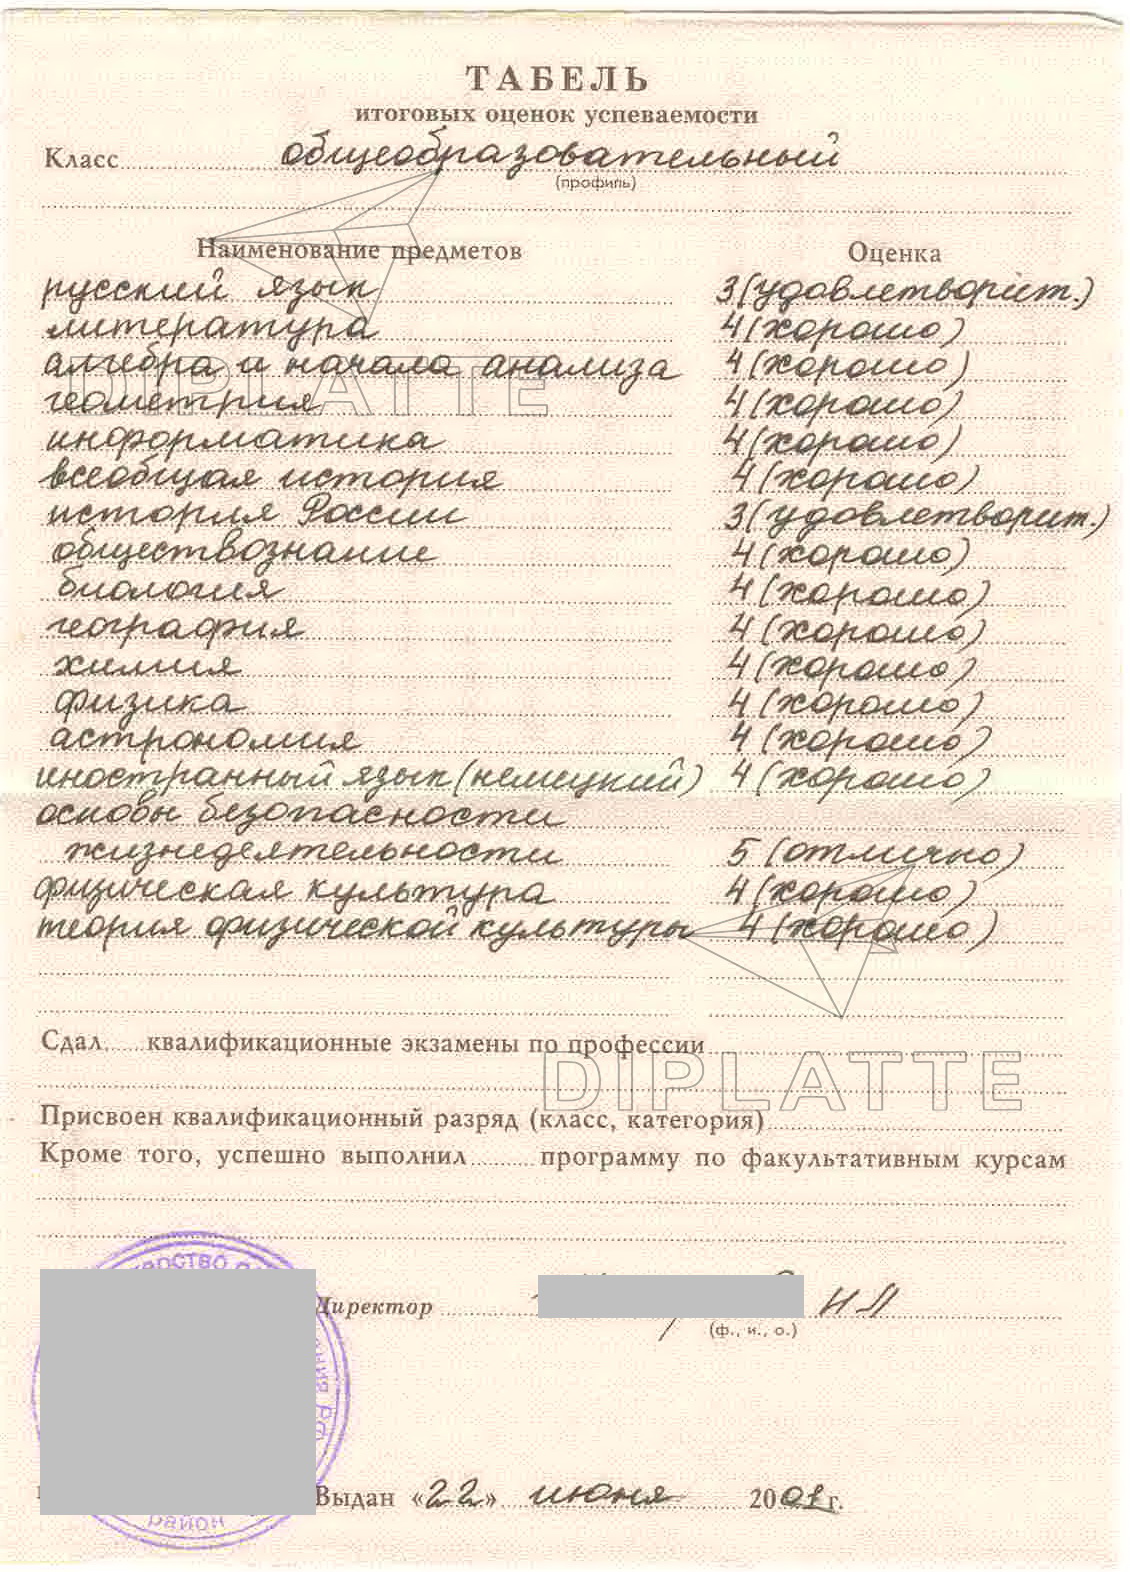 ТАБЕЛЬ
итоговых оценок успеваемости
Класс общеобразовательный
(профиль)
Наименование предметов Оценка
русский язык 3 (удовлетворит.)
литература 4 (хорошо)
алгебра и начала анализа 4 (хорошо)
DIPLATTE
геометрия 4 (хорошо)
информатика 4 (хорошо)
всеобщая история 4 (хорошо)
история России 3 (удовлетворит.)
обществознание 4 (хорошо)
биология 4 (хорошо)
география 4 (хорошо)
химия 4 (хорошо)
физика 4 (хорошо)
астрономия 4 (хорошо)
иностранный язык (немецкий) 4 (хорошо)
основы безопасности
жизнедеятельности 5 (отлично)
физическая культура 4 (хорошо)
теория физической культуры 4 (хорошо)
Сдал......квалификационные экзамены по профессии
DIPLATTE
Присвоен квалификационный разряд (класс, категория)
Кроме того, успешно выполнил.........программу по факультативным курсам
Директор Н Л
(ф., и., о.)
Выдан «22» июня 2001 г.
район